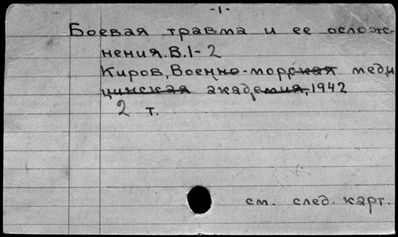 -1-
Боевая травма и ее ослож-
нения.В.1-2
Киров, Военно-морская меди
цинская академия, 1942
2 т.
см. след. карт.